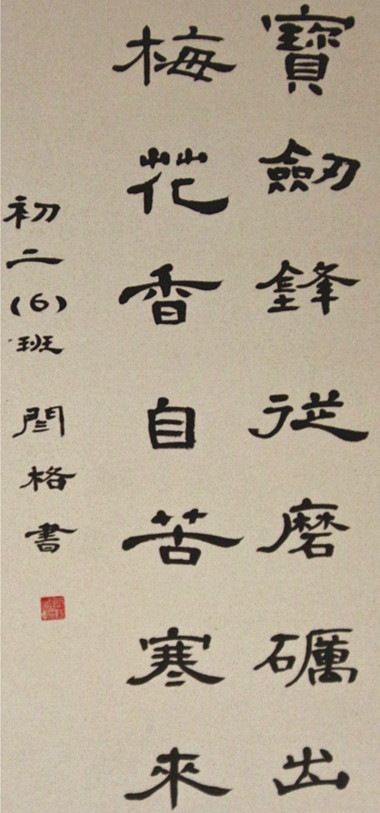 寶劒鋒從磨礪出
梅花香自苦寒來
初二(6)班 閆格書